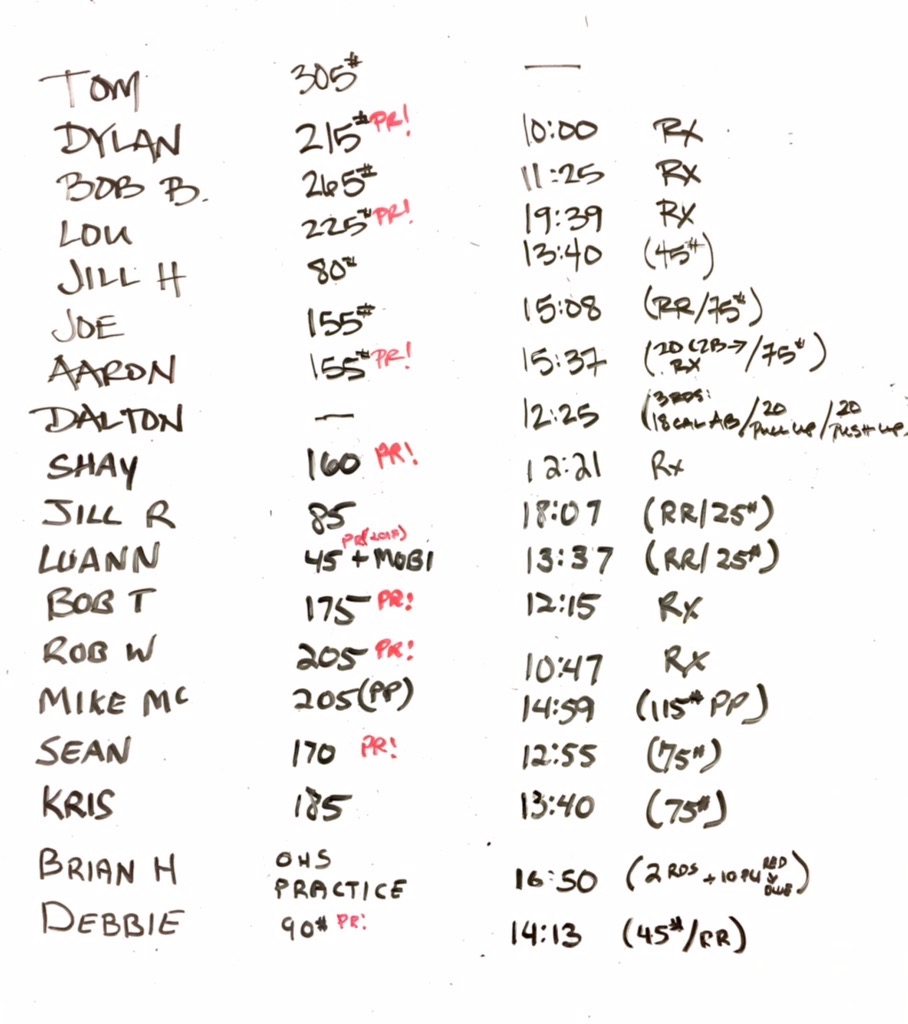 TOM 305# —
DYLAN 215# PR! 10:00 RX
BOB B. 265# 11:25 RX
LOU 225# PR! 19:39 RX
JILL H 80# 13:40 (45#)
JOE 155# 15:08 (RR/75#)
AARON 155# PR! 15:37 (20 C2B→ RX /75#)
DALTON — 12:25 (3 RDS: 18 CAL AB/20 PULL UP/20 PUSH UP
SHAY 160 PR! 12:21 RX
JILL R 85 18:07 (RR/25#)
PR!
LUANN 45 + MOBI 13:37 (RR/25#)
BOB T 175 PR! 12:15 RX
ROB W 205 PR! 10:47 RX
MIKE MC 205(PP) 14:59 (115# PP)
SEAN 170 PR! 12:55 (75#)
KRIS 185 13:40 (75#)
BRIAN H OHS PRACTICE 16:50 (2 RDS + 10 PU RED BLUE)
DEBBIE 90# PR! 14:13 (45#/RR)